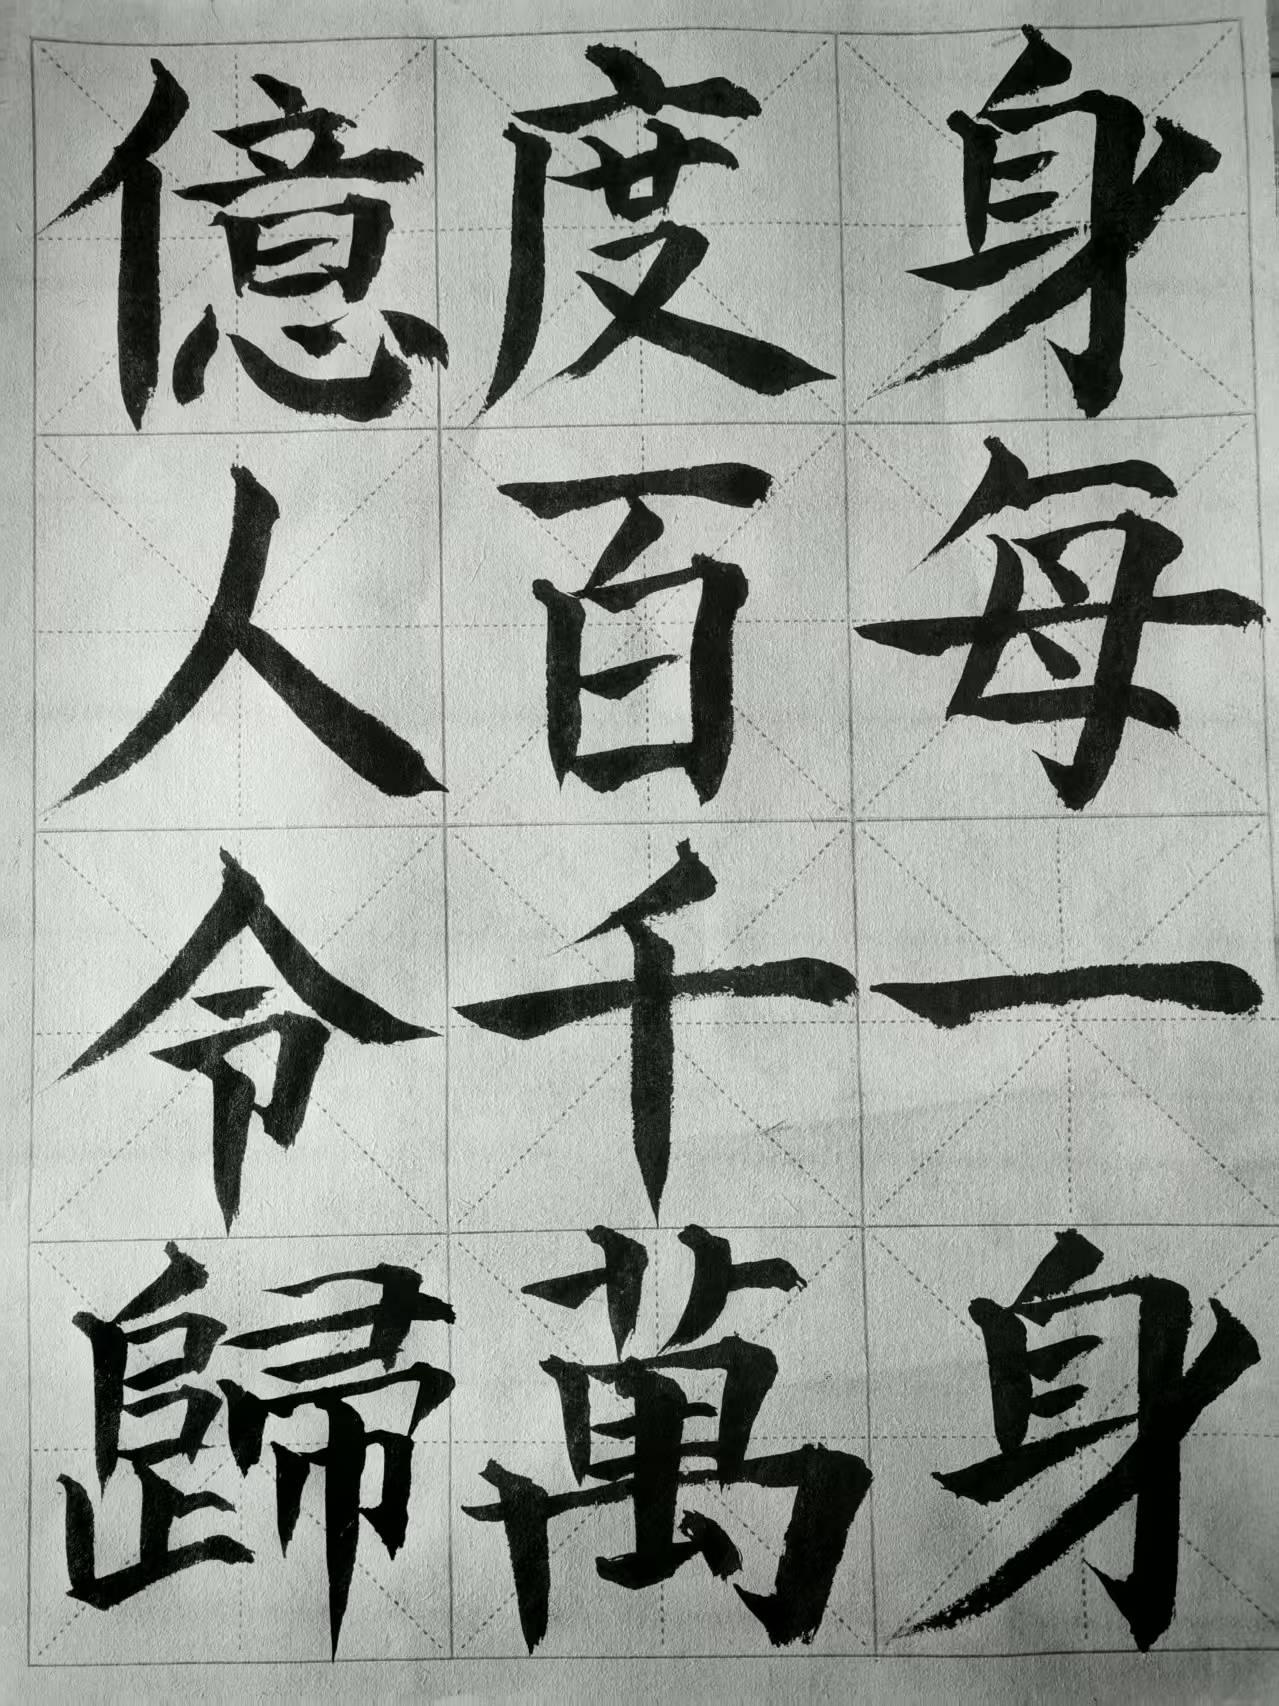 身每一身
度百千萬
億人令歸